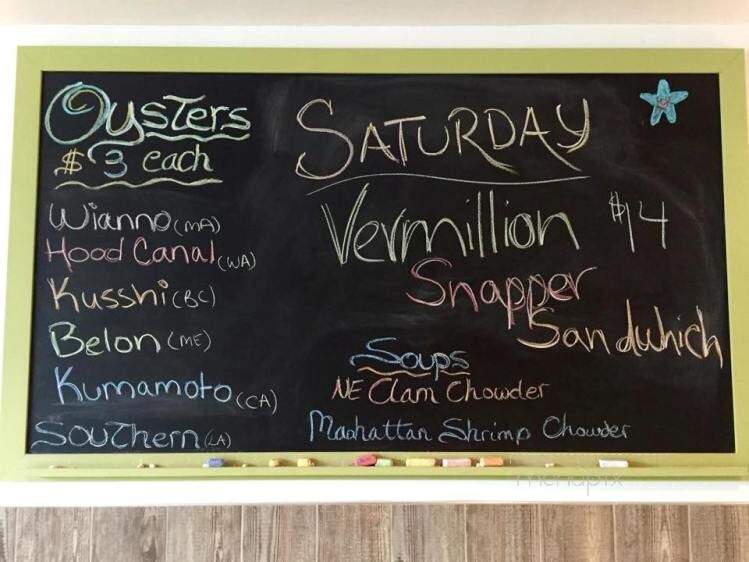 Oysters
$3 each
Wianno (MA)
Hood Canal (WA)
Kusshi (BC)
Belon (ME)
Kumamoto (CA)
Southern (LA)
SATURDAY
Vermillion $14
Snapper
Sandwhich
Soups
NE Clam Chowder
Manhattan Shrimp Chowder
menupix